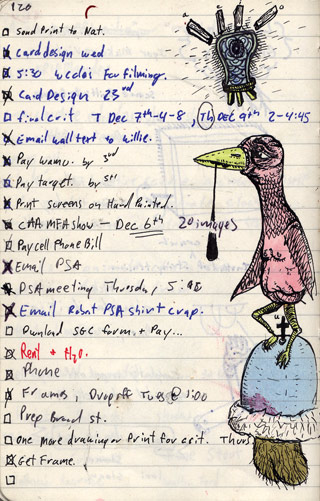 120
Send Print to Nat.
Card design wed
5:30 wedels For filming.
Card Design 23rd
final crit T Dec 7th-4-8, Th Dec 9th 2-4:45
Email wall text to willie.
Pay wamu. by 3rd
Pay target. by 5th
Print screens on Hand Painted.
CHA MFA show - Dec 6th 20 images
Pay cell Phone Bill
Email PSA
PSA meeting Thursday, 5:
Email Robot PSA shirt crap.
Dwnload SGC form. + Pay...
Rent + H2O.
Phone
Frames, Dropoff Tues @ 1:00
Prep Board st.
one more drawing or Print for crit. Thurs
Get Frame.